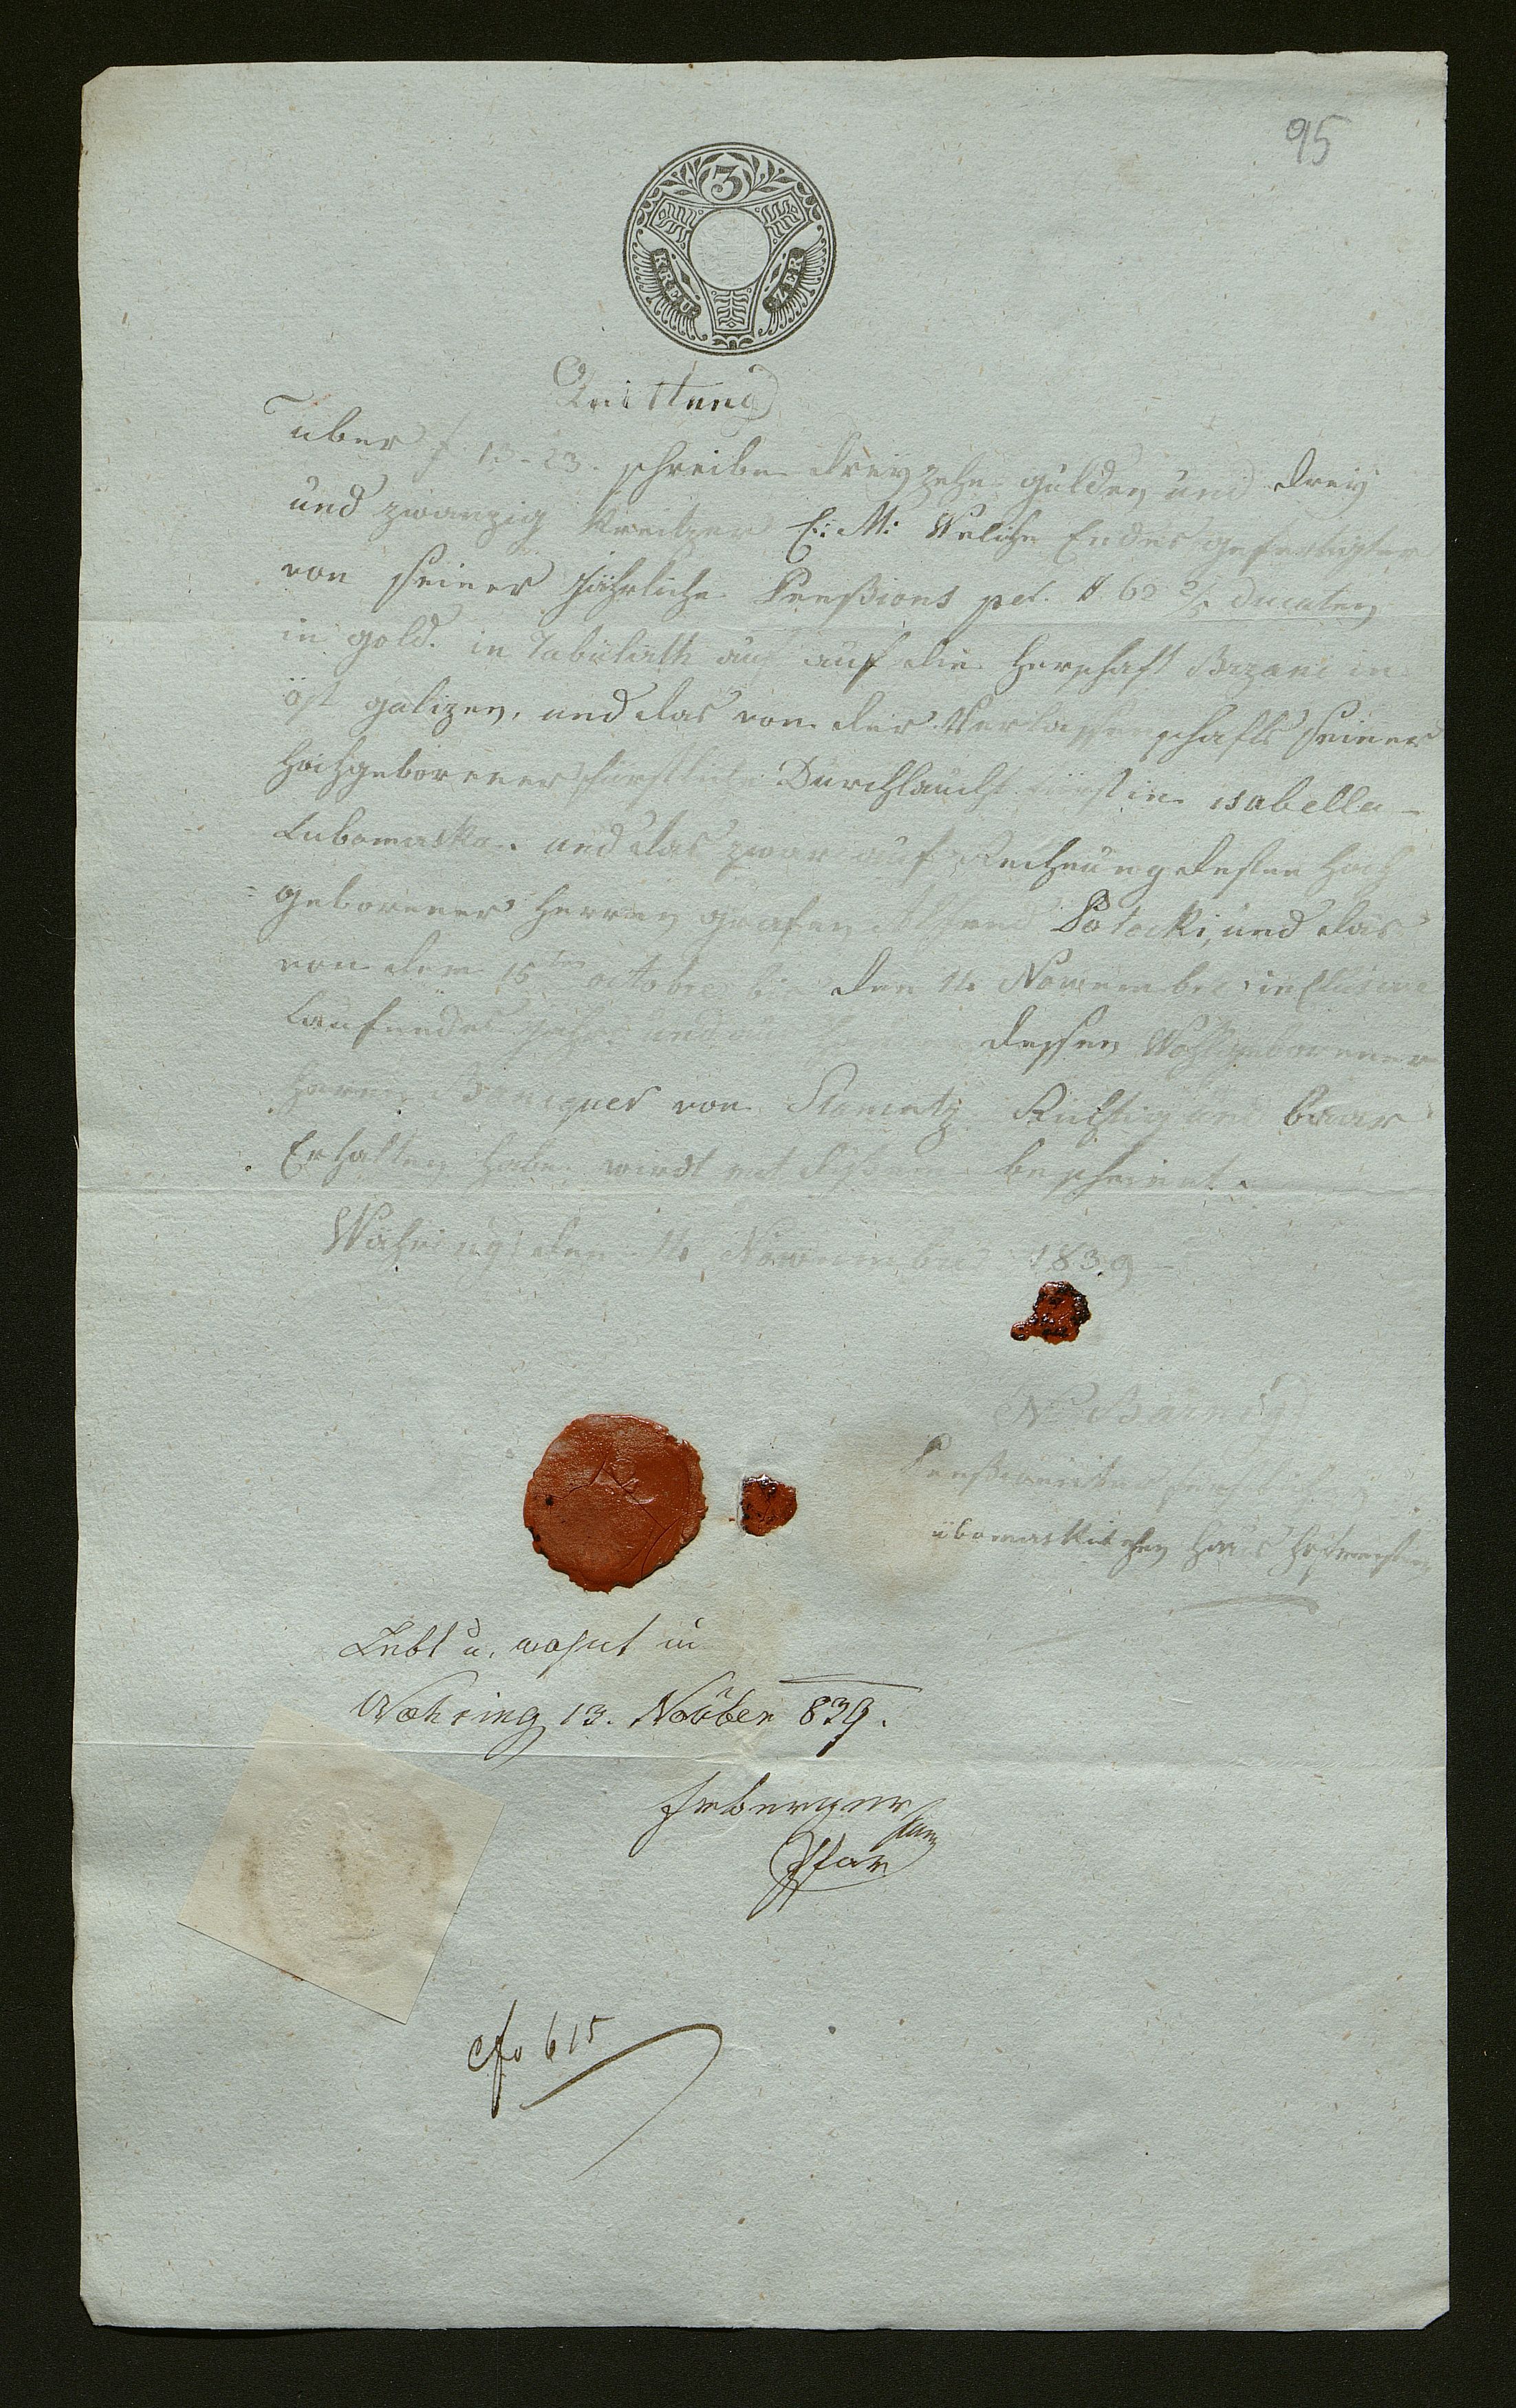 95
3
KREU ZER
Quittung
über f 13-23. schreibe dreyzehn gulden und drey
und zwanzig Kreitzer C: M: Welche Endesgefertigter
von seiner jährliche Penßions pcl. # 62 2/5 ducaten
in gold. in auf die Herschaft Brzani in
öst galizen, und das von der Verlassenschafts seiner
Hochgeborener fürstliche Durchlaucht fürstin isabella
Lubomirska. und das zwar auf Rechnung desten Hoch
geborener Herren grafen Alfred Potocki, und das
von dem 15ten octobre bis den 14 November inclusive
Laufendes Jahrs und dessen Wohlgeborener
Herrn Banquer von Stametz Richtig und baar
Erhalten habe. wirdt mit dissem bescheinet.
Währing den 14 November 1839
N Bärned
Penßionirter fürstlich
ubomirskischen Haus Hofmeister
Lebt u. wohnt in
Wahring 13. Nowber 839.
Pfar
615